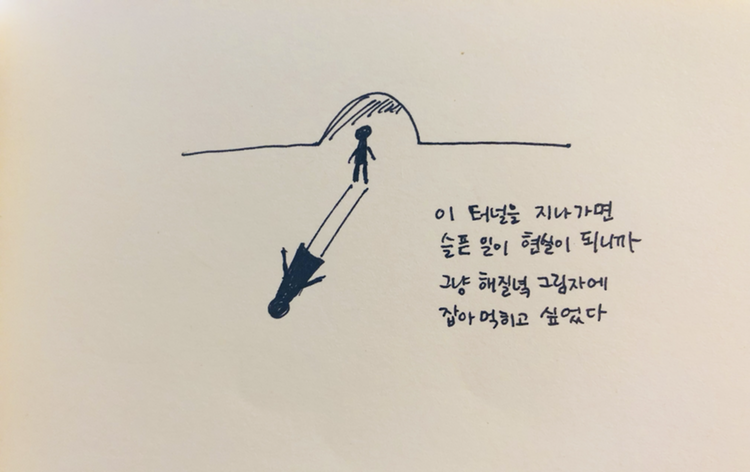 이 터널을 지나가면
슬픈 일이 현실이 되니까
그냥 해질녘 그림자에
잡아먹히고 싶었다